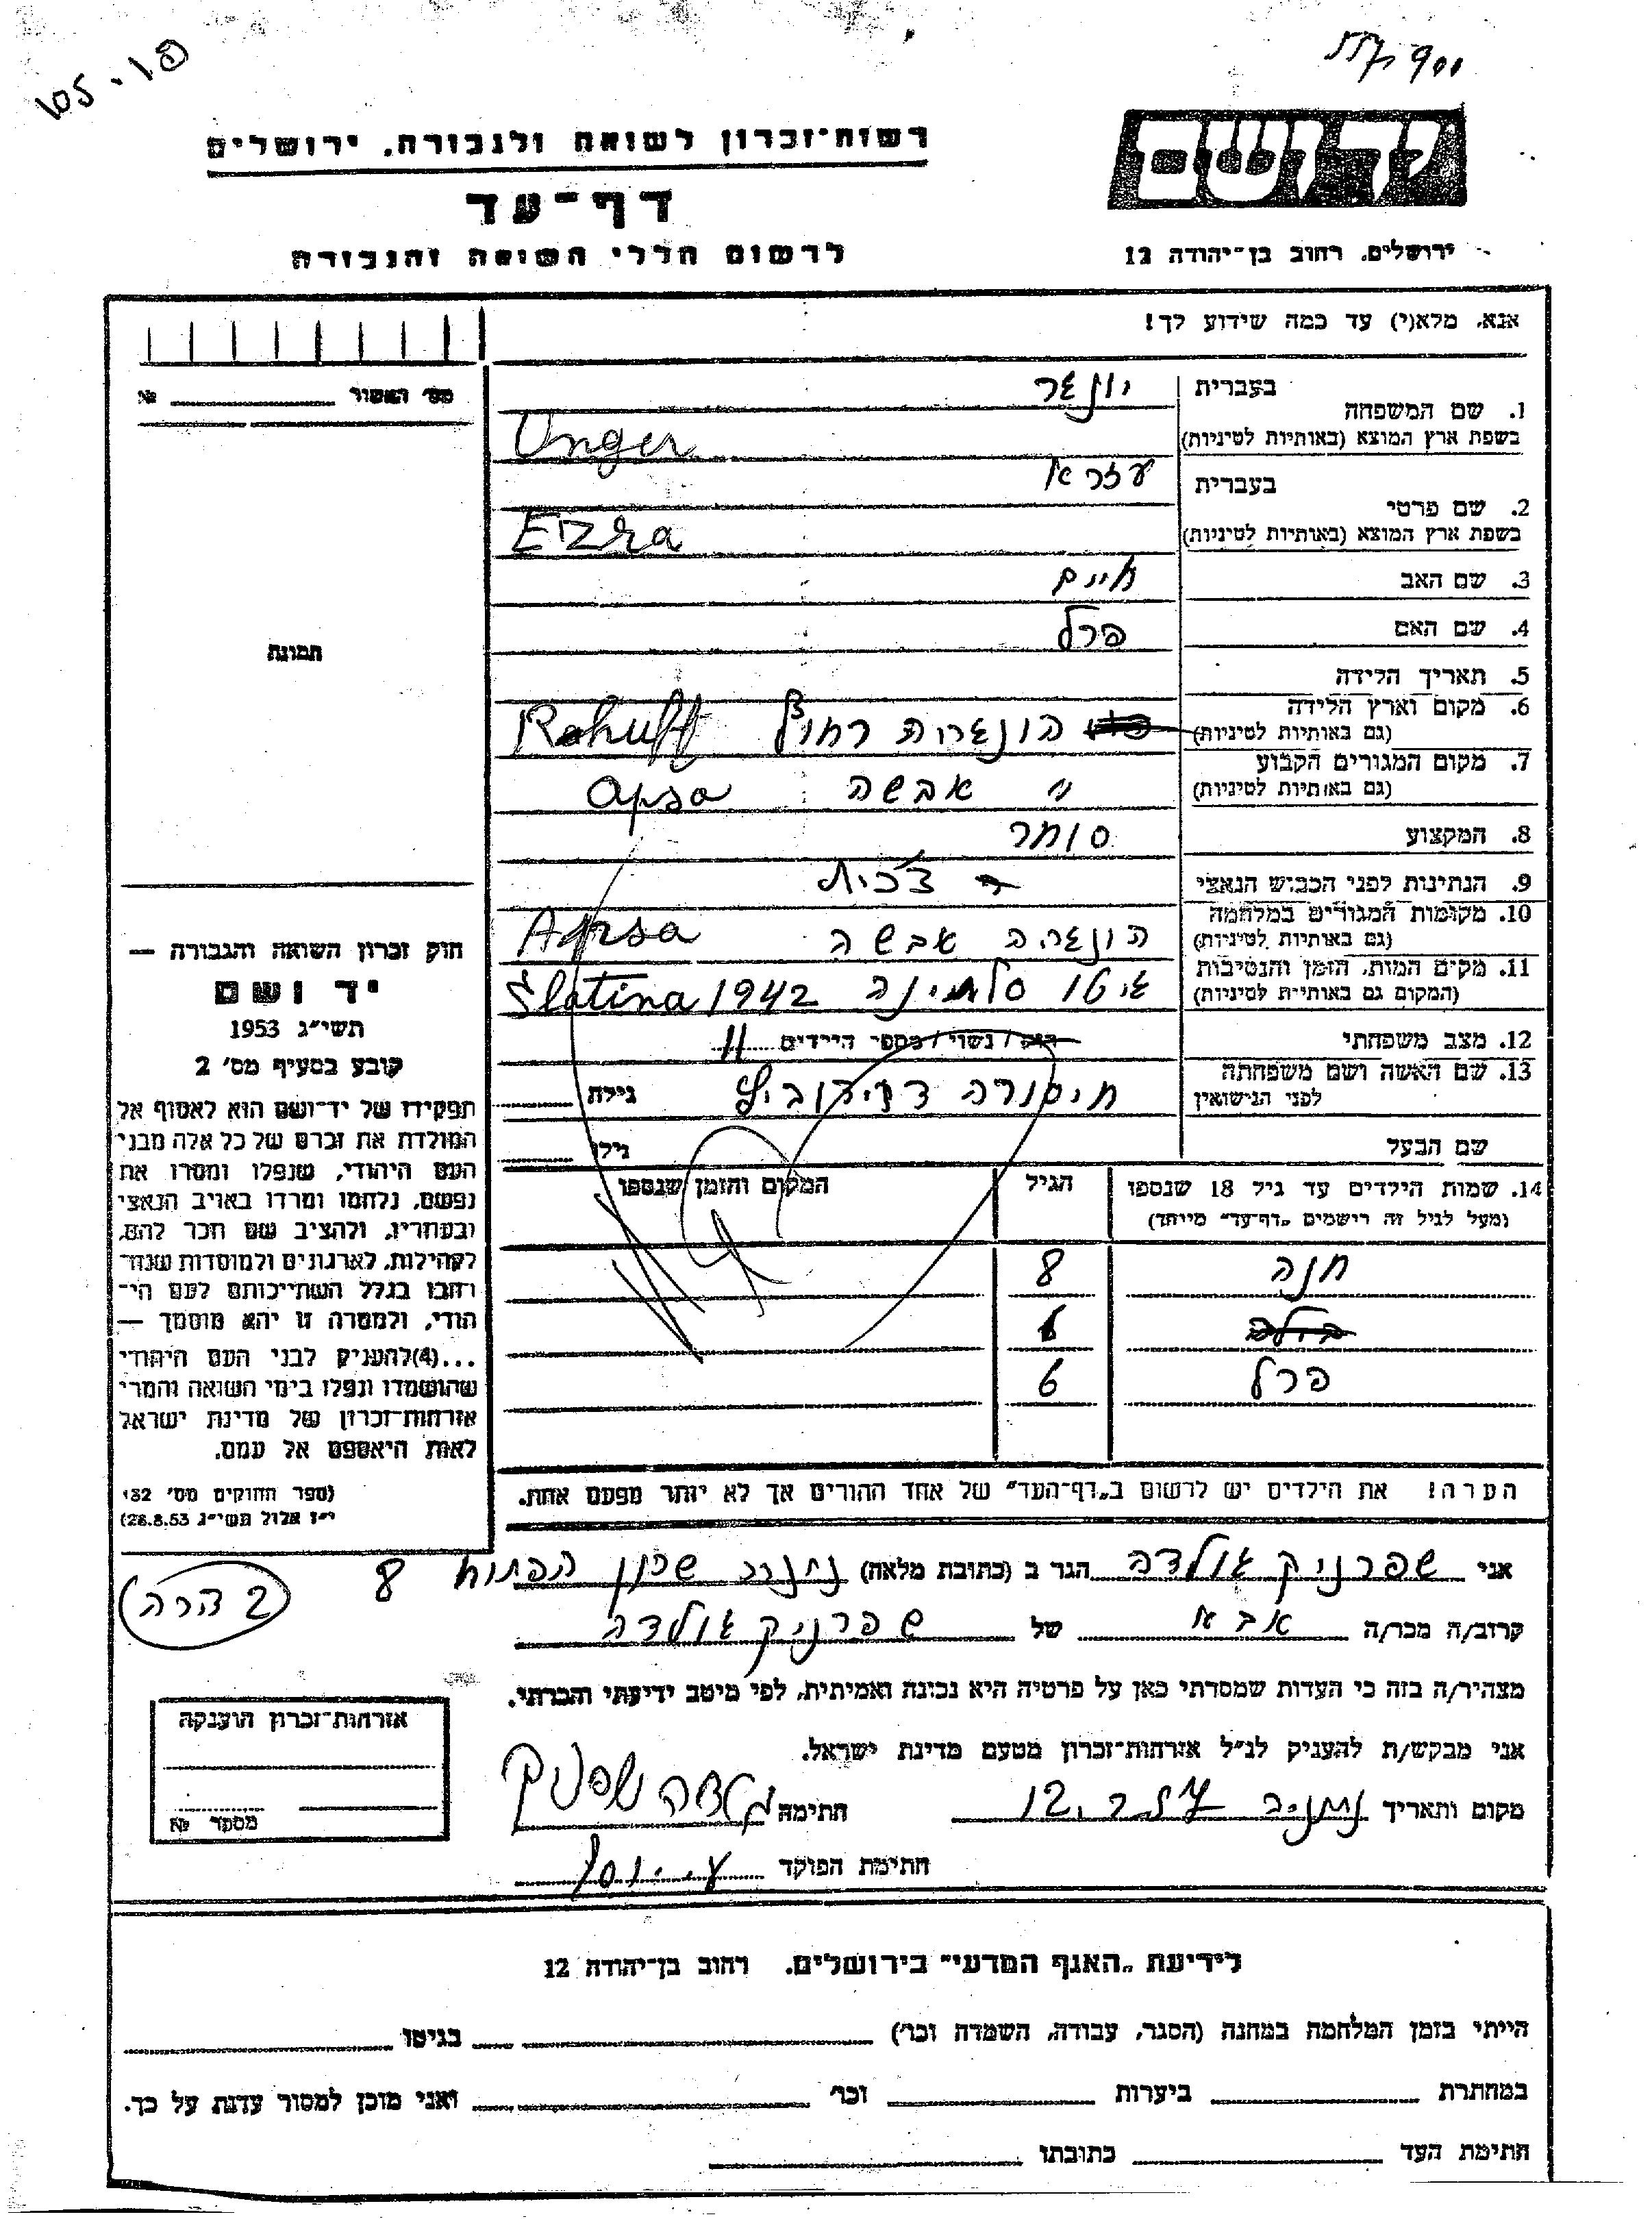 רשות־זכרון לשואה ולגבורה, ירושלים
דף־עד
לרשום חללי השואה והגבורה
ירושלים, רחוב בן־יהודה 12
אנא, מלא(י) עד כמה שידוע לך!
מס׳ האשור №
1. שם המשפחה בעברית אונגר
בשפת ארץ המוצא (באותיות לטיניות) Unger
2. שם פרטי בעברית עזרא
בשפת ארץ המוצא (באותיות לטיניות) Ezra
3. שם האב חיים
4. שם האם פרל
5. תאריך הלידה
6. מקום וארץ הלידה הונגריה
(גם באותיות לטיניות)
7. מקום המגורים הקבוע
(גם באותיות לטיניות) " אבשה Apsa
8. המקצוע סוחר
9. הנתינות לפני הכבוש הנאצי צ'כית
10. מקומות המגורים במלחמה
(גם באותיות לטיניות) הונגריה אבשה Apsa
11. מקום המות, הזמן והנסיבות
(המקום גם באותיות לטיניות) גיטו סלטינה Slatina 1942
12. מצב משפחתי רוק/נשוי/מספר הילדים 11
13. שם האשה ושם משפחתה
לפני הנישואין גילה
שם הבעל גילו
14. שמות הילדים עד גיל 18 שנספו הגיל המקום והזמן שנספו
(מעל לגיל זה רישמים „דף־עד״ מיוחד)
חנה 8
פרל 6
הערה! את הילדים יש לרשום ב„דף־העד״ של אחד ההורים אך לא יותר מפעם אחת.
תמונה
חוק זכרון השואה והגבורה —
יד ושם
תשי״ג 1953
קובע בסעיף מס׳ 2
תפקידו של יד־ושם הוא לאסוף אל
המולדת את זכרם של כל אלה מבני
העם היהודי, שנפלו ומסרו את
נפשם, נלחמו ומרדו באויב הנאצי
ובעוזריו, ולהציב שם וזכר להם,
לקהילות, לארגונים ולמוסדות שנח־
רבו בגלל השתייכותם לעם הי־
הודי, ולמטרה זו יהא מוסמך —
...(4) להעניק לבני העם היהודי
שהושמדו ונפלו בימי השואה והמרי
אזרחות־זכרון של מדינת ישראל
לאות היאספם אל עמם.
(ספר החוקים מס׳ 132
י״ז אלול תשי״ג 28.8.53)
אני שפרניק גולדה הגר ב (כתובת מלאה) שכון 8
קרוב/ה מכר/ה אבא של שפרניק גולדה
מצהיר/ה בזה כי העדות שמסרתי כאן על פרטיה היא נכונה ואמיתית, לפי מיטב ידיעתי והכרתי.
אני מבקש/ת להעניק לנ״ל אזרחות־זכרון מטעם מדינת ישראל.
מקום ותאריך חתימה
חתימת הפוקד
אזרחות־זכרון הוענקה
מספר №
לידיעת „האגף המדעי״ בירושלים, רחוב בן־יהודה 12
הייתי בזמן המלחמה במחנה (הסגר, עבודה, השמדה וכו׳) בגיטו
במחתרת ביערות וכו׳ ואני מוכן למסור עדות על כך.
חתימת העד כתובתו